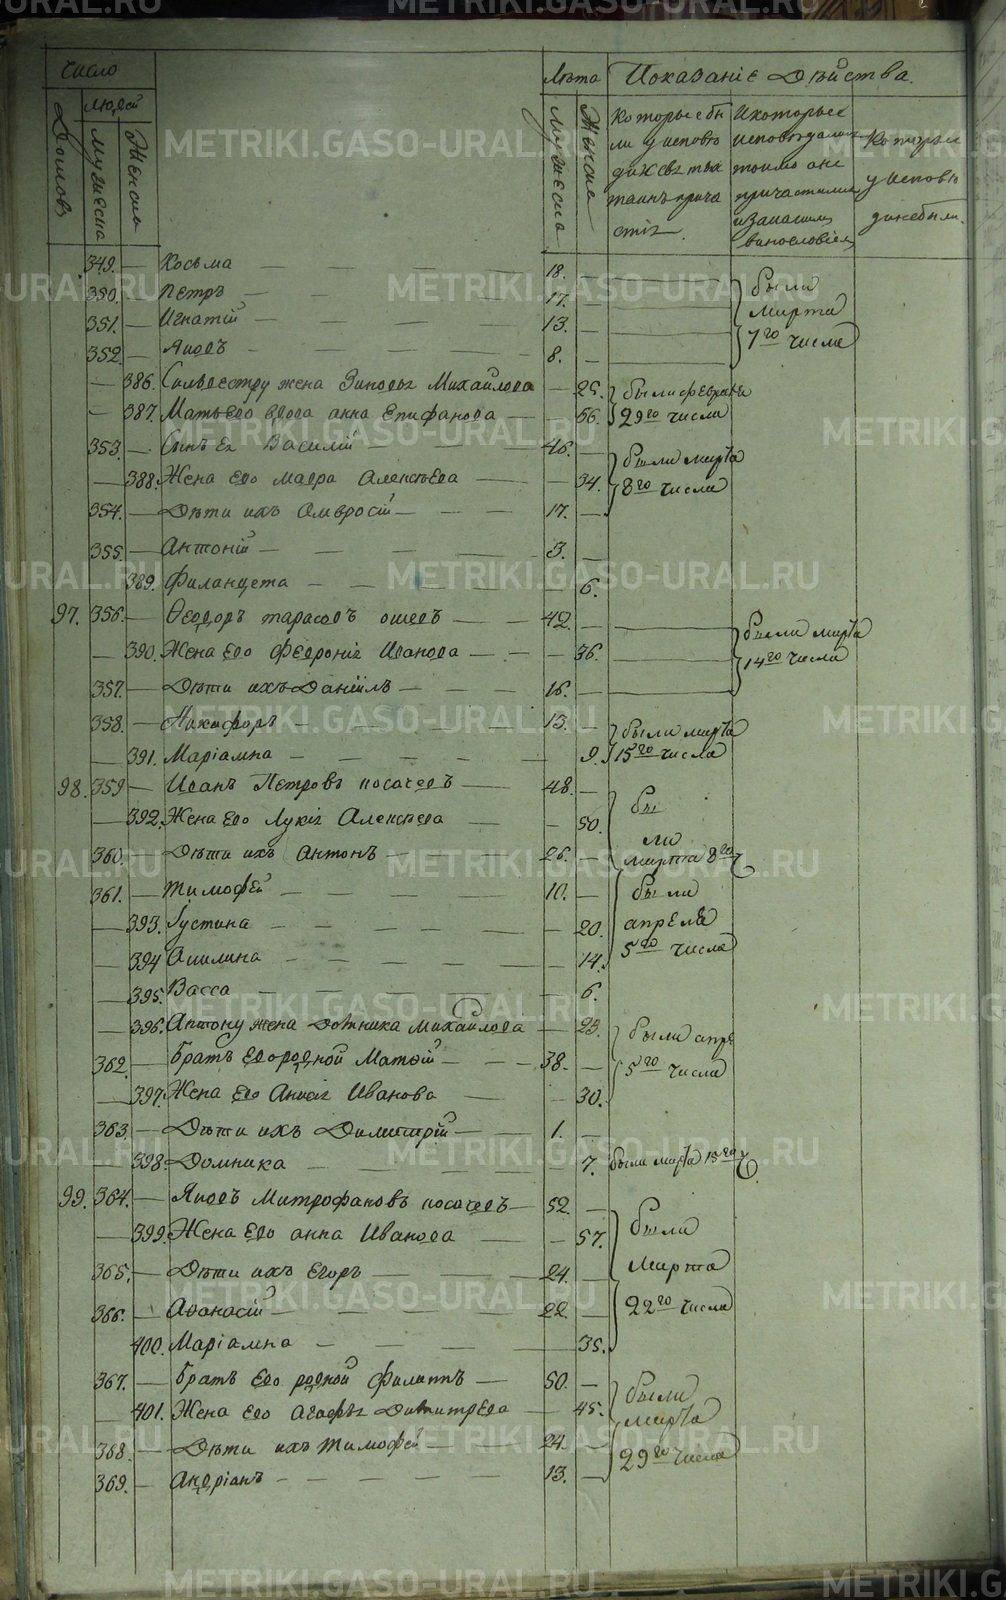 Число
Лѣта Показаніе Дѣйства.
Дворовъ
людей
мужеска
Женска
Мужеска
Женска
Которые бы
ли у исповѣ
ди и святыхъ
таинъ прича
стія.
Которые
у исповѣ
ди не были.
349. — Косьма — 18. были
350. — Петръ — 17. — марта
351. — Игнатій — 13. — 7го числа
352. — Яковъ — 8. —
— 386. Сильвестру жена Зиновья Михайлова — 25. были февраля
— 387. Матвѣево вдова анна Епифанова — 56. 29го числа
353. — Сынъ Ея Василій — 46. — были марта
— 388. Жена его мавра Алексѣева — 34. 8го числа
354. — Дѣти ихъ Амвросій — 17. —
355. — Антоній — 3. —
389. Филанцета — 6.
97. 356. — Ѳеодоръ тарасовъ ошевъ — 42. были марта
— 390. Жена Его Февронія Иванова — 36. 14го числа
357. — Дѣти ихъ Даніилъ — 16. —
358. — Никифоръ — 13. — были марта
391. Маріамна — 9. 15го числа
98. 359 — Иванъ Петровъ посачевъ — 48. — бы
— 392. Жена Его Лукія Алексѣева — 50. ли
360. — Дѣти ихъ Антонъ — 26. — марта 8го ч
361. — Тимофей — 10. — были
— 393. Іустина — 20. апреля
— 394 Акилина — 14. 5го числа
— 395. Васса — 6.
— 396. Антону жена Домника михайлова — 23. были апре
362. — Братъ Его родной Матвій — 38. — 5го числа
— 397. Жена Его Анисія Иванова — 30.
363. — Дѣти ихъ Димитрій — 1. —
— 398. Домника — 7. были марта 15го ч
99. 364. — Яковъ Митрофановъ посачевъ — 52. — были
— 399. Жена Его анна Иванова — 57. марта
365. — Дѣти ихъ Егоръ — 24. — 22го числа
366. — Аѳанасій — 22. —
400. Маріамна — 35.
367. — Братъ Его родной Филиппъ — 50. — были
— 401. Жена Его Агафья Димитрева — 45. марта
368. — Дѣти ихъ Тимофей — 24. — 29го числа
369. — Андріанъ — 13. —
METRIKI.GASO-URAL.RU